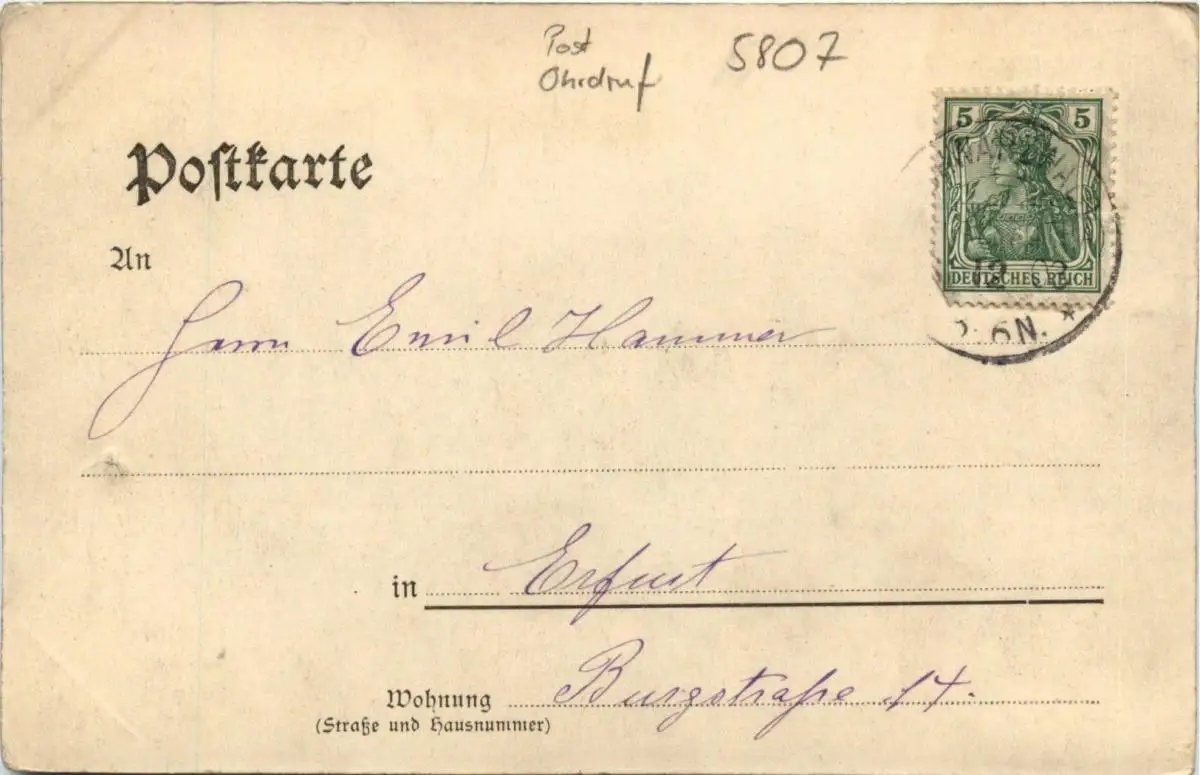 Post 5807
Ohrdruf
5 5
DEUTSCHES REICH
12 03
6N. *
Postkarte
An
Herrn Emil Hammer
in Erfurt
Wohnung Burgstraße 14.
(Straße und Hausnummer)